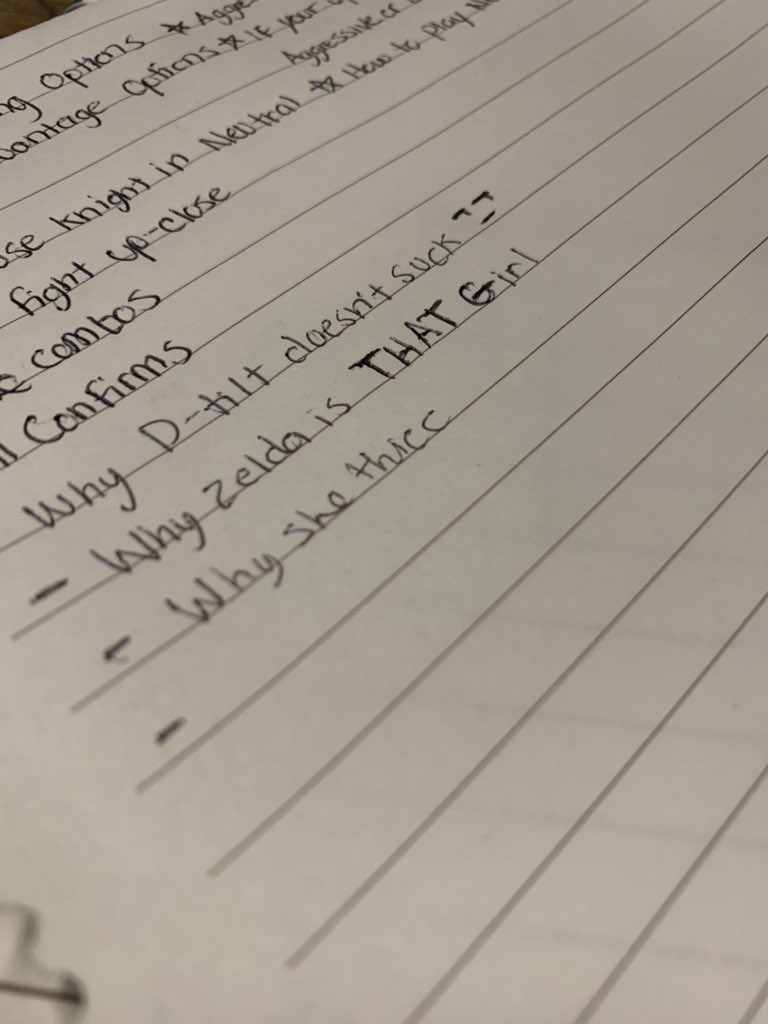 Options ☆ Agge
vantage Options ☆ If your
Aggressive or
use Knight in Neutral ☆ How to play
fight up-close
combos
Confirms
Why D-tilt doesn't suck
- Why Zelda is THAT Girl
- Why she thicc
-